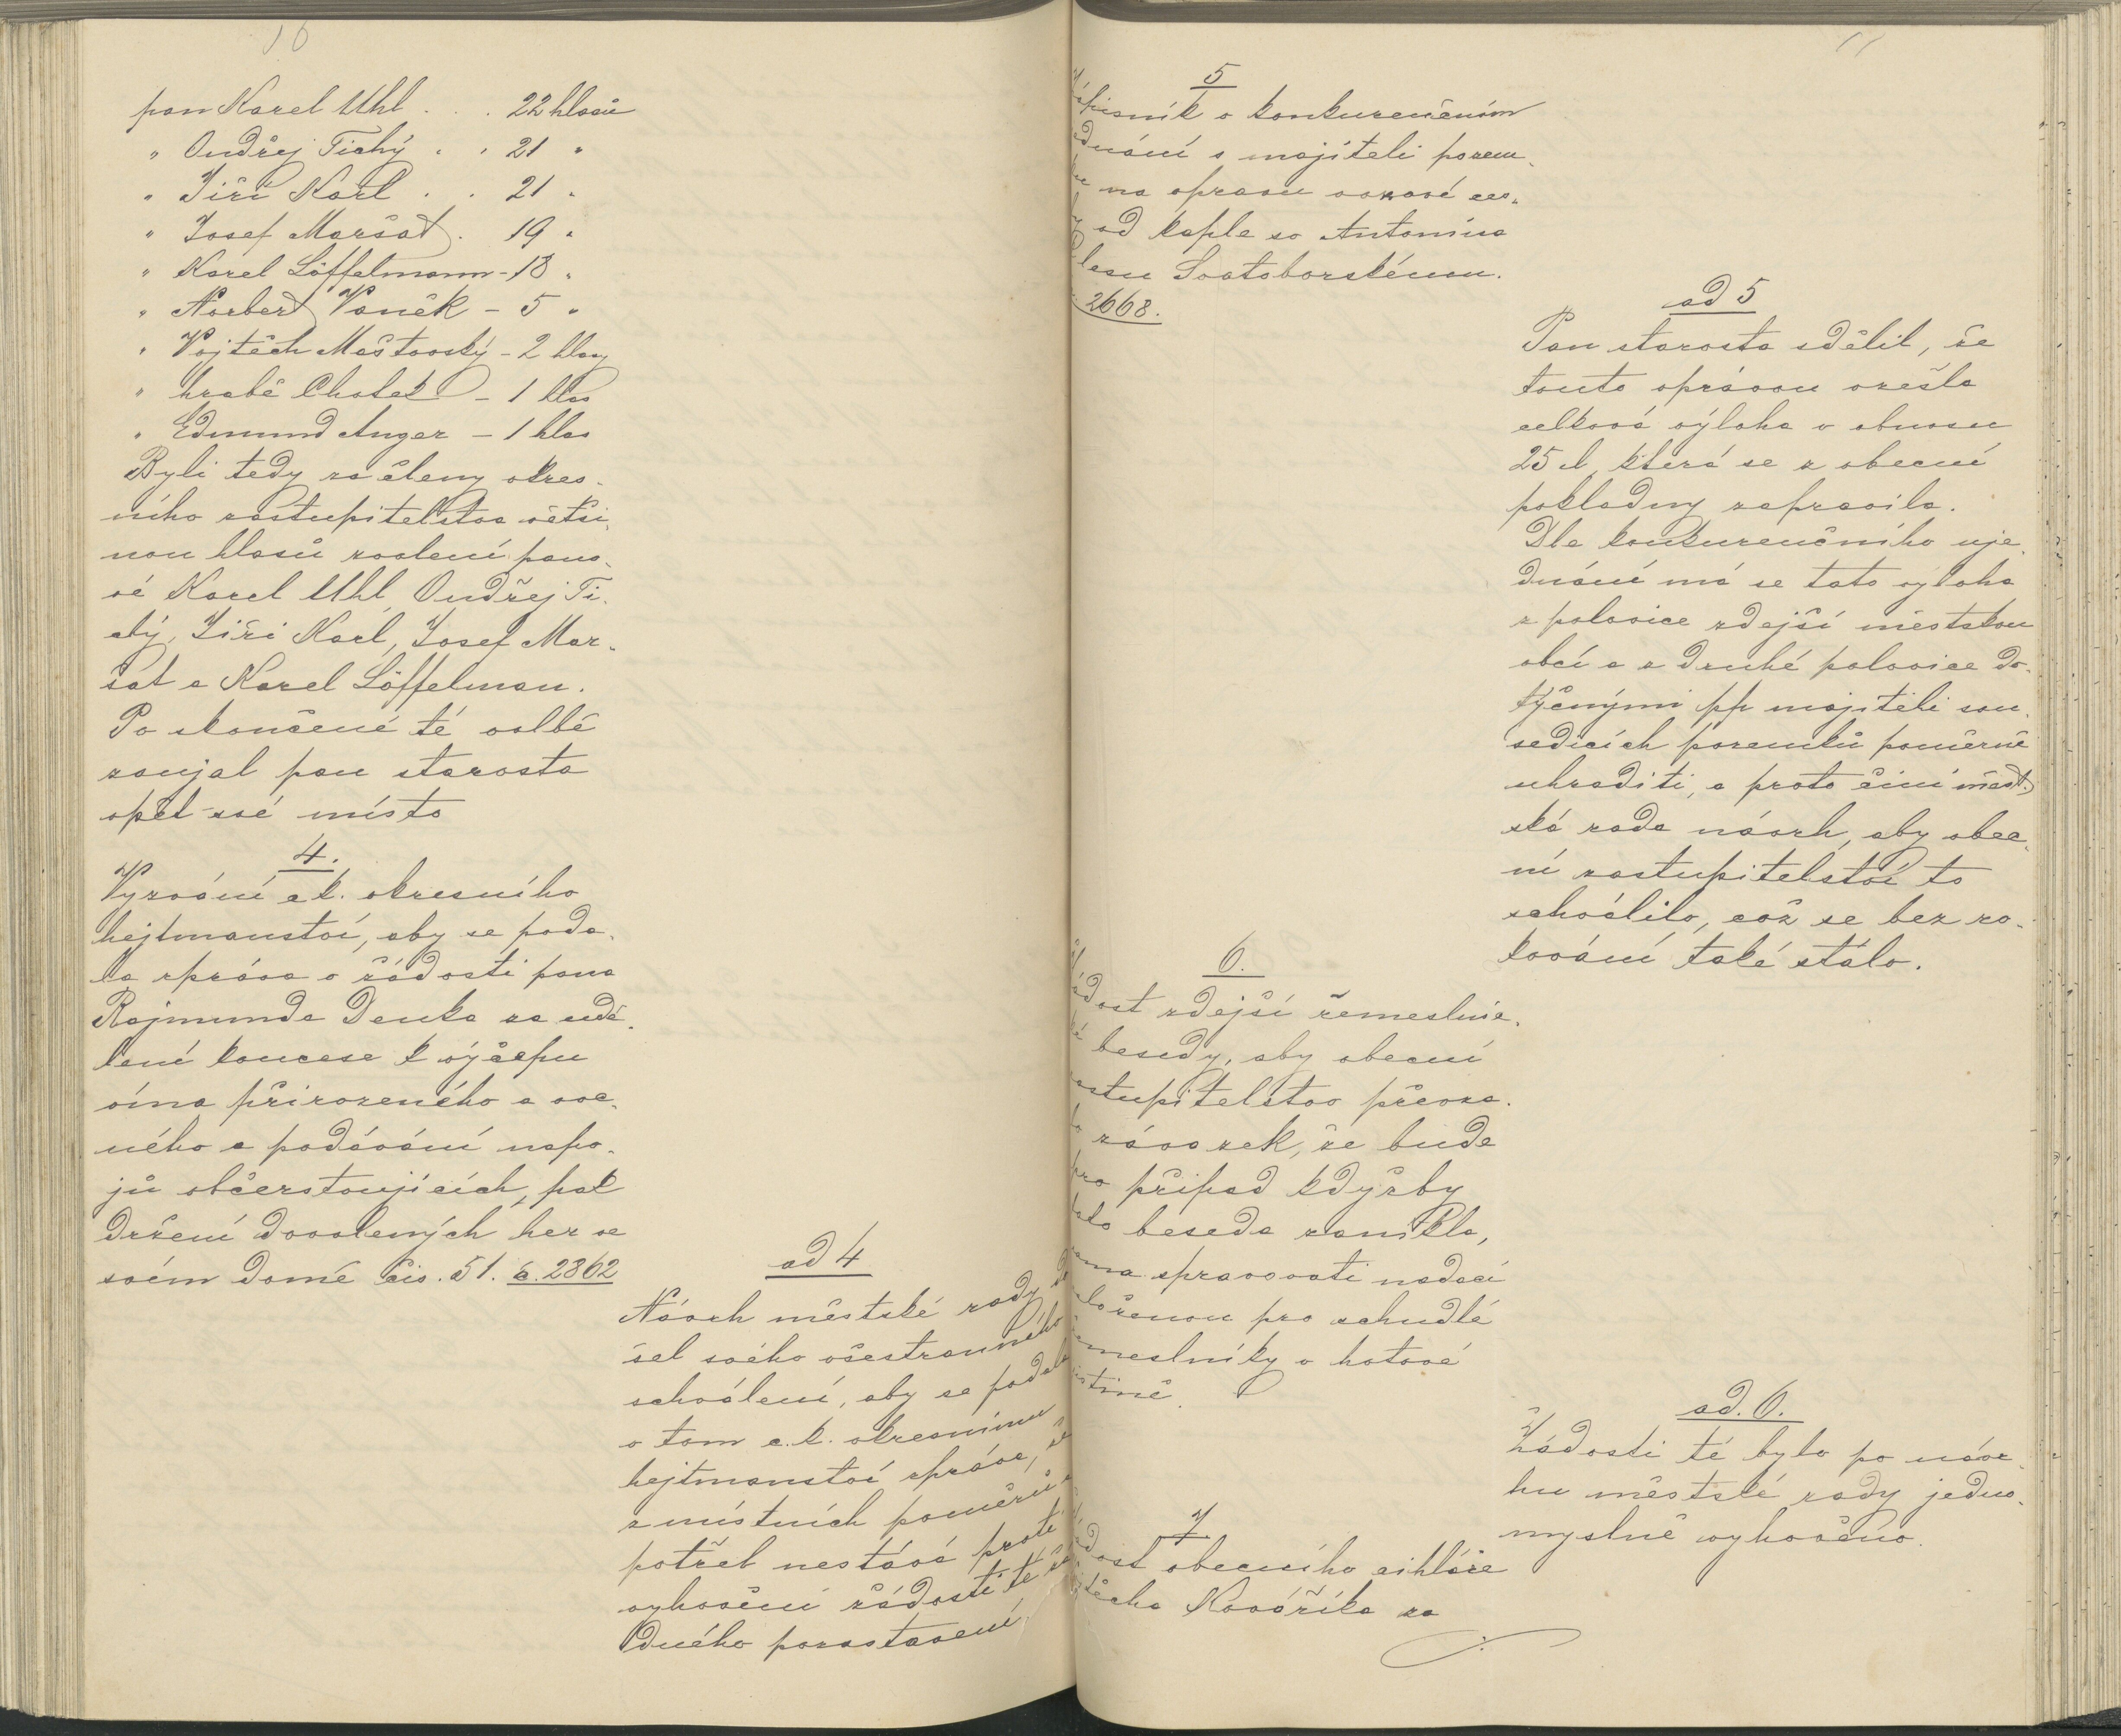 pan Karel Uhl . . . 22 hlasů
" Ondřej Tichý . . 21 "
" Jiří Karl . . 21 "
" Josef Maršat . 19 "
" Karel Löffelmann - 18 "
" Norbert Vaněk - 5 "
" Vojtěch Maštovský - 2 hlasy
" hrabě Chotek - 1 hlas
" Edmund Anger - 1 hlas
Byli tedy za členy okres-
ního zastupitelstva větši-
nou hlasů zvolení páno-
vé Karel Uhl, Ondřej Ti-
chý, Jiří Karl, Josef Mar-
šat a Karel Löffelman.
Po skončené té volbě
zaujal pan starosta
opět své místo
4.
Vyzvání c k. okresního
hejtmanství, aby se poda-
la zpráva o žádosti pana
Rajmunda Denka za udě-
lení koncese k výčepu
vína přirozeného a ovo-
ného a podávání nápo-
jů občerstvujících, pak
držení dovolených her ve
svém domě čis. 51. č. 2862
ad 4
Návrh městské rady do
šel svého všestranného
schválení, aby se podala
o tom c. k. okresnímu
hejtmanství zpráva, že
z místních poměrů a
potřeb nestává proti
vyhovění žádosti té žá
dného pozastavení
5
Zápisník o konkurenčním
jednání s majiteli pozem-
ků na opravu vozové ces-
ty od kaple sv Antonína
k lesu Svatoborskému.
č. 2668.
ad 5
Pan starosta sdělil, že
touto opravou vzešla
celková výloha v obnosu
25 zl, která se z obecní
pokladny zapravila.
Dle konkurenčního uje-
dnání má se tato výloha
z polovice zdejší městskou
obcí a z druhé polovice do-
tyčnými pp majiteli sou-
sedících pozemků poměrně
uhraditi, a proto činí měst-
ská rada návrh, aby obec-
ní zastupitelství to
schválilo, což se bez ro-
kování také stálo.
6.
Žádost zdejší řemeslnic-
ké besedy, aby obecní
zastupitelstvo převza-
lo závazek, že bude
pro případ kdyžby
tato beseda zanikla,
sama spravovati nadaci
založenou pro schudlé
řemeslníky v hotové
jistině.
ad. 6.
Žádosti té bylo po návr-
hu městské rady jedno-
myslně vyhověno.
7
Žádost obecního cihláře
Vojtěcha Kováříka za